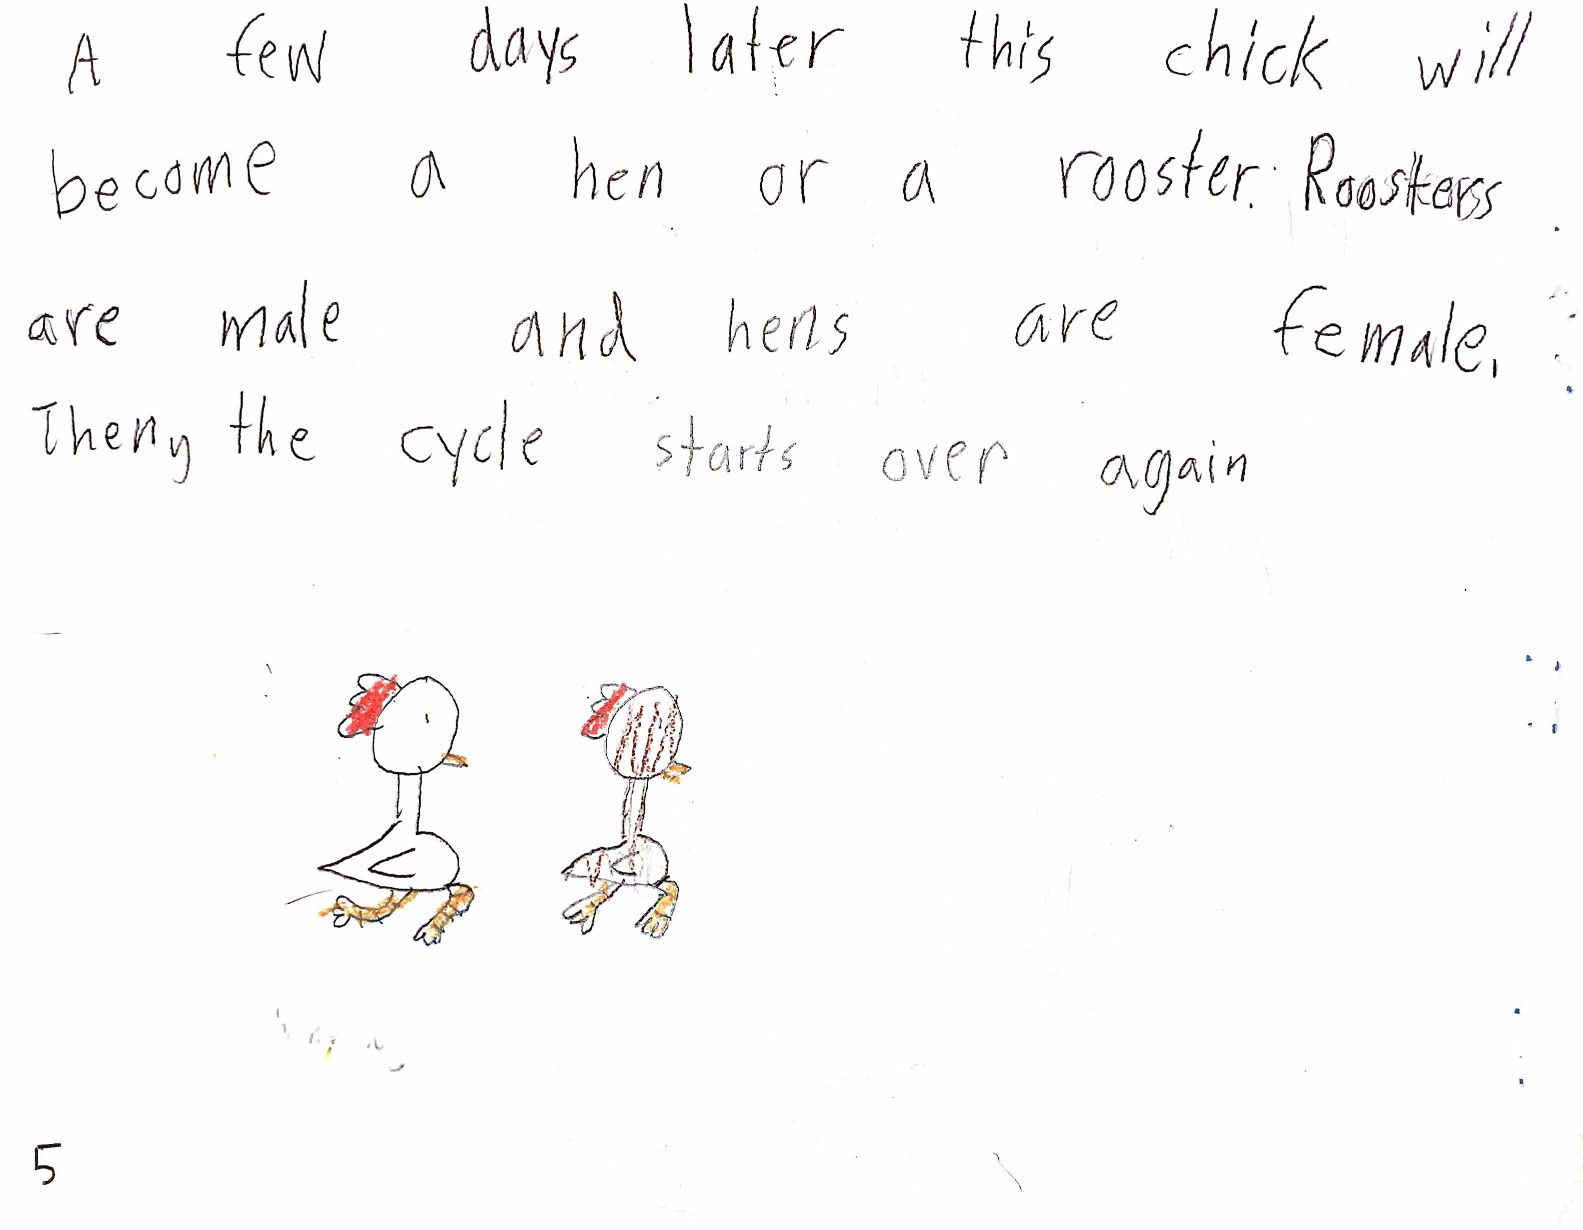 A few days later this chick will
become a hen or a rooster. Roosters
are male and hens are female.
Theny the cycle starts over again
5